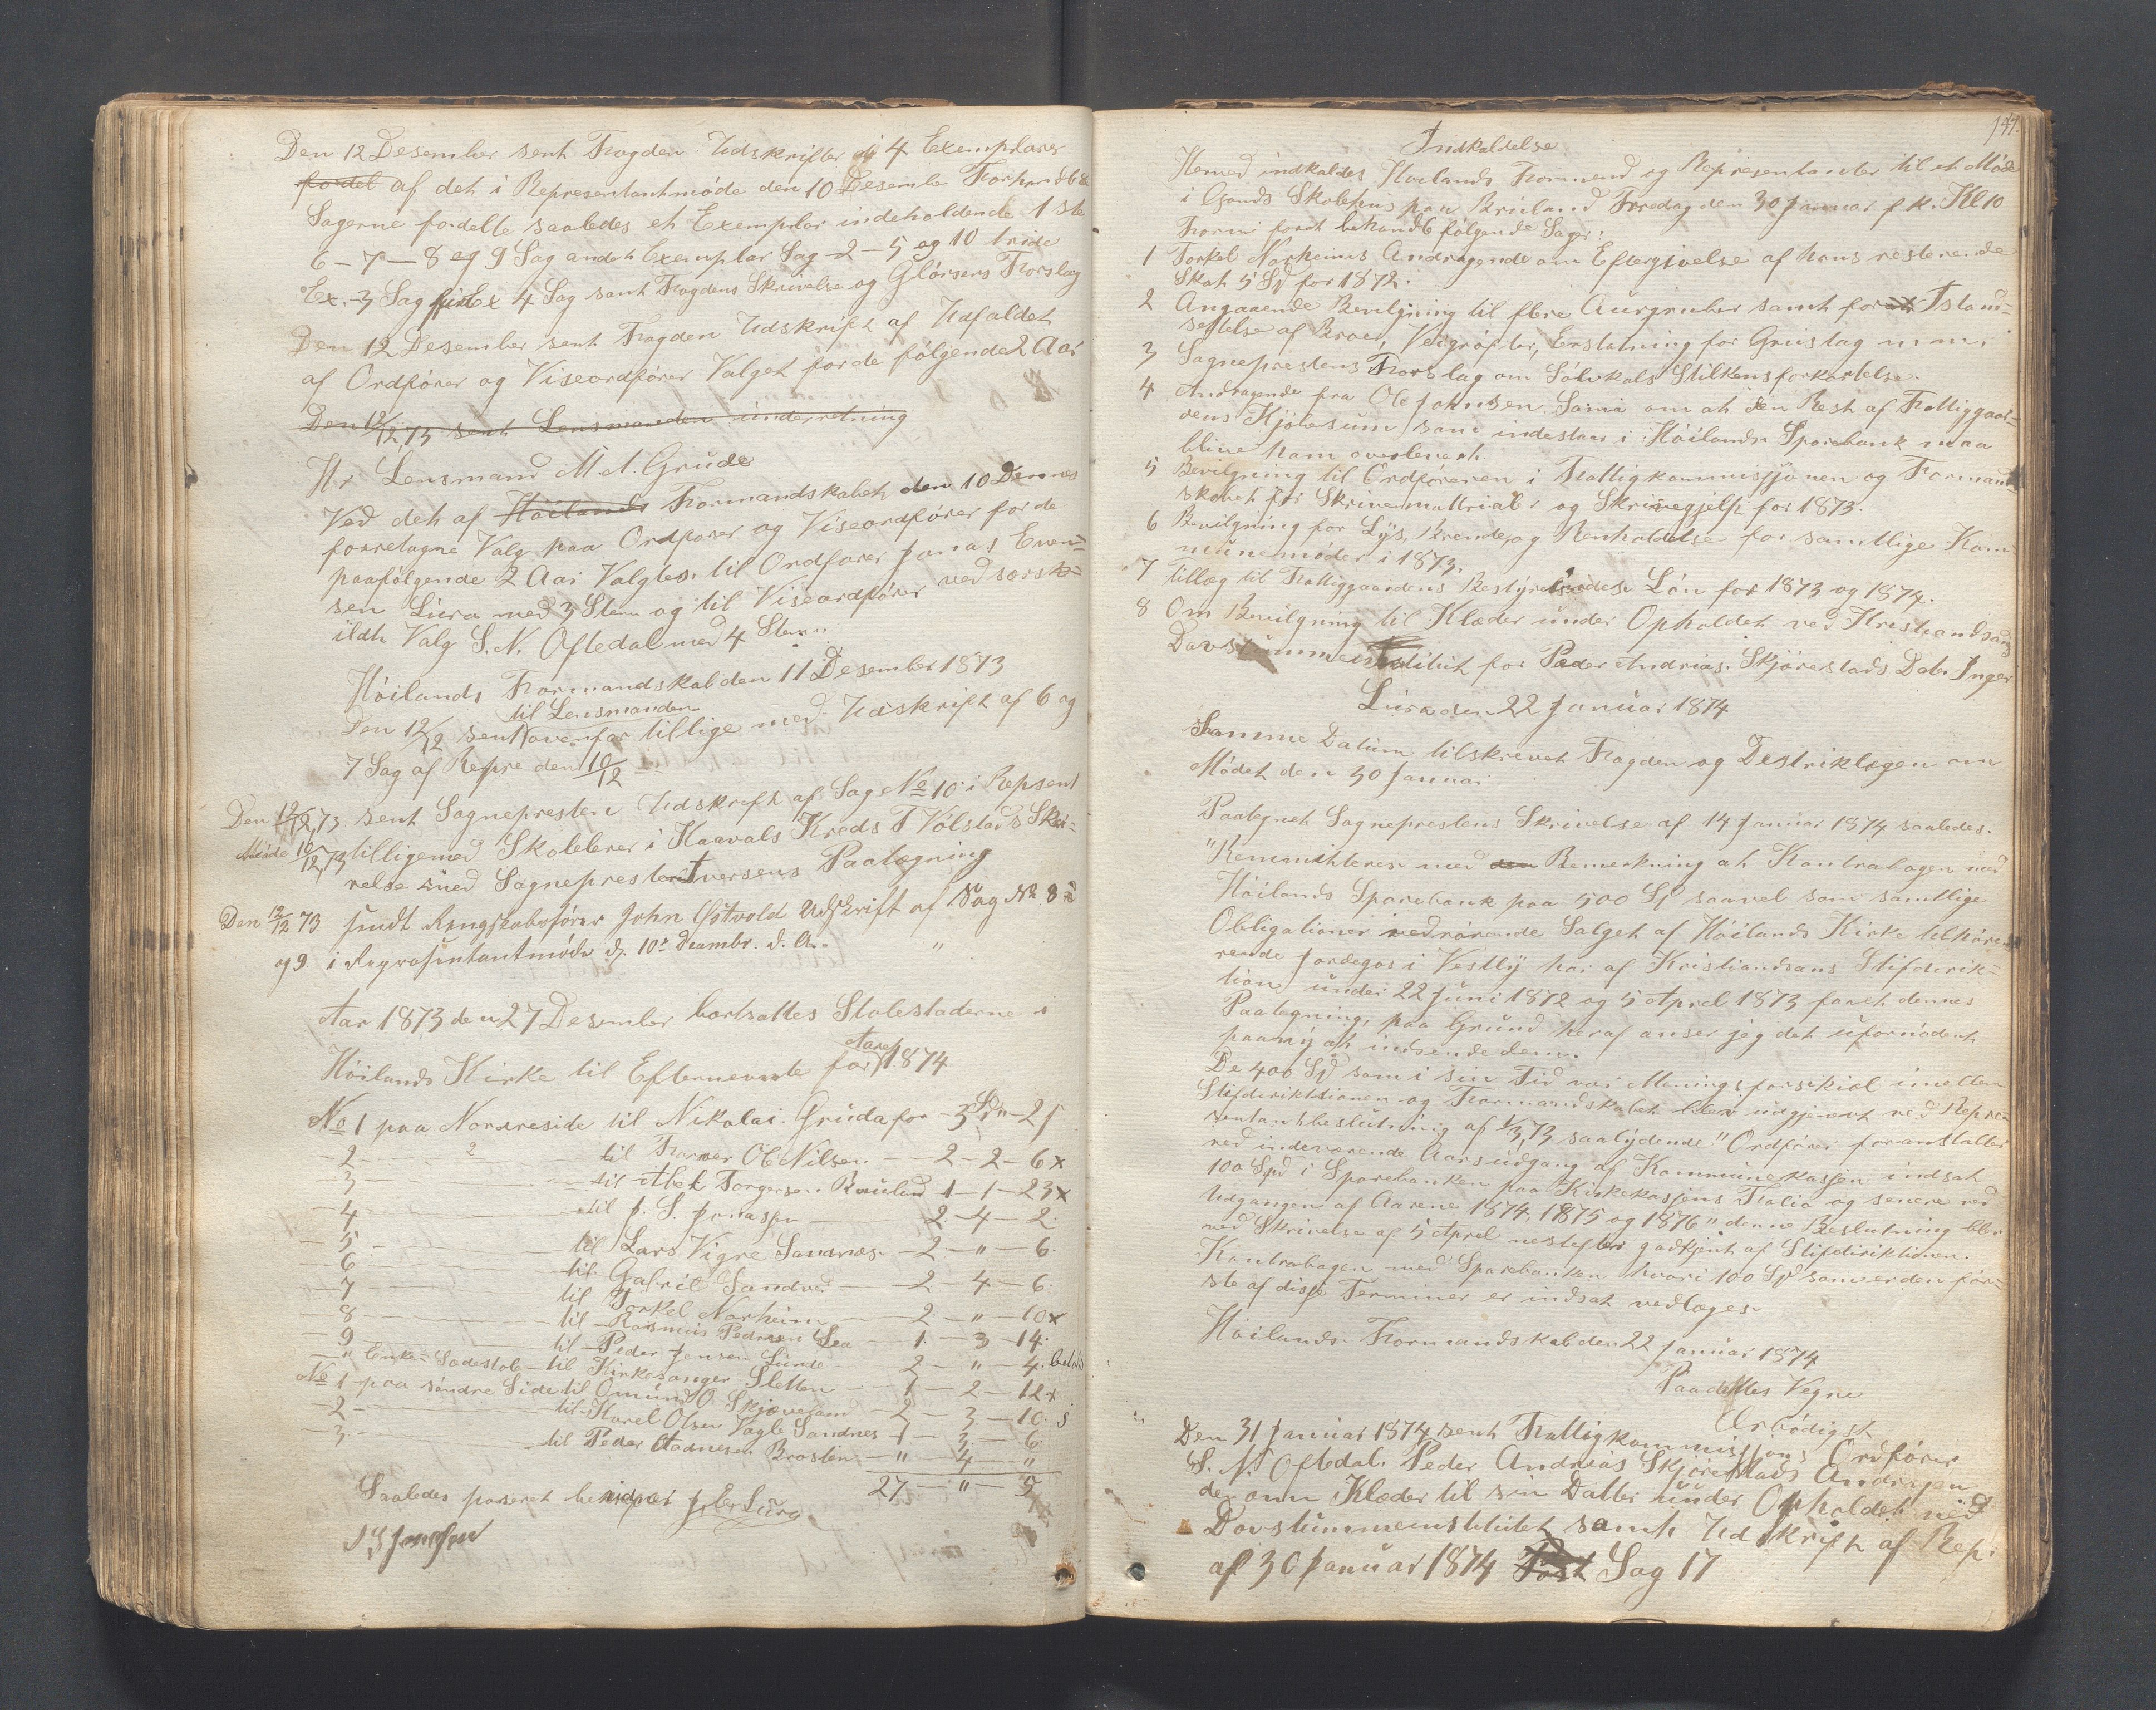 Den 12 Desember sent Fogden Udskrifter i 4 Exemplarer
fordel af det i Representantmøde den 10 Desembe Forhandlede
Sagerne fordelte saaledes et Exemplar indeholdende 1ste
6 – 7 – 8 og 9 Sag andet Exemplar Sag 2 – 5 og 10 tride
Ex. 3 Sag Ex 4 Sag samt Fogdens Skrivelse og Glørsens Forslag
Den 12 Desember sent Fogden Udskrift af Udfaldet
af Ordfører og Viseordfører Valget for de følgende 2 Aar
Den 12/12 73 sent Lensmanden underretning
Hr Lensmand M A. Grude
Ved det af Høilands Formandskabet den 10 Dennes
forretagne Valg paa Ordfører og Viseordfører for de
paafølgende 2 Aar Valgtes til Ordfører Jonas Even-
sen Lura med 3 Stem og til Viseordfører ved særsk-
ildt Valg S. N. Oftedal med 4 Stem
Høilands Formandskab den 11 Desember 1873
til Lensmanden
Den 12/12 sent ovenfor tillige med Udskrift af 6 og
7 Sag af Repre den 10/12
Den 12/12 73 sent Sognepresten Udskreft af Sag No 10 i Repsent
Møde 10/12 73 tilligemed Skolelerer i Haavals Kreds T Vølstads Skri-
velse med Sogneprest Iversens Paategning
Den 12/12 73 sendt Regnskabsfører John Østvold Udskrift af Sag No 8
og 9 i Repræsentantmøde d. 10de Decembr. d. A.
Aar 1873 den 27 Desember bortsattes Stolestaderne i
Aaret
Høilands Kirke til Efternevnte for 1874
No 1 paa Norreside til Nikolai Gruda for – 3 Spd " – 21
– 2 – 2 – til Former Ole Nilsen – 2 – 2 – 6 x
– 3 – til Abel Torgersen Bruland 1 – 1 – 23 x
– 4 – til J. S. Jonassen – 2 – 4 – 2
– 5 – til Lars Vigre Sandnes – 2 – " – 6
6 – til Gabriel Sandved – 2 – 4 – 6
7 – til Torkel Norheim – 2 – " – 10 x
8 – til Rasmus Pedersen Lea – 1 – 3 – 14
– 9 – til Peder Jensen Lunde – 2 – " – 4 betalt
– " Enke Sædestole – til Kirkesanger Sletten – 1 – 2 – 12 x
No 1 paa søndre Side til Omund O Skjævesland – 2 – 3 – 10
– 2 – til Karel Olsen Vagle Sandnes – 1 – 3 – 6
– 3 – til Peder Aadnesen Brosten – " – 4 – "
27 – " – 5
Saaledes passeret bevidner J. Ev. Lura
J S Jonassen
147.
Indkaldelse
Herved indkaldes Høilands Formend og Representanter til et Møde
i Gands Skolehus paa Bruland Fredag den 30 Januar f. k. Kl 10
Form for at behandle følgende Sager:
1 Torkel Norheims Andragende om Eftergivelse af hans resterende
Skat 5 Spd for 1872.
2 Angaaende Bevilgning til flere Aurgruber samt for Istand-
settelse af Broer, Veigrøfter, Erstatning for Grustag m. m.
3 Sogneprestens Forslag om Sølvkals Stilkens forkortelse.
4 Andragende fra Ole Johnsen Soma om at den Rest af Fattiggaar-
dens Kjøbesum som indestaar i Høilands Sparebank maa
blive ham overleveret.
5 Bevilgning til Ordføreren i Fattigkommissjonen og Formand
skabet for Skrivematterialer og Skrivegjelp for 1873.
6 Bevilgning for Lys, Brende og Renholdelse for samtlige Kom-
munemøder i 1873.
7 Tillæg til Fattiggaardens Bestyrelsesdes Løn for 1873 og 1874.
8 Om Bevilgning til Klæder under Opholdet ved Kristiandsands
Døvstummeinstitut for Peder Andrias Skjørestads Dater Inger
Lura den 22 Januar 1874
Samme Datum tilskrevet Fogden og Destriklægen om
Mødet den 30 Januar.
Paategnet Sogneprestens Skrivelse af 14 Januar 1874 saaledes.
"Remmitteres med den Bemerkning at Kontrabogen med
Høilands Sparebank paa 500 Spd saavel som samtlige
Obligationer vedrørende Salget af Høilands Kirke tilhøre-
rende Jordegos i Vestly har af Kristiandsans Stifderik-
tion under 22 Juni 1872 og 5 Aprel 1873 faaet dennes
Paategning, paa Grund heraf anser jeg det ufornødent
paany at indsende dem.
De 400 Spd som i sin Tid var Meningsforskiel imellem
Stifdiriktionen og Formandskabet blev udgjevet ved Repre-
sentantbeslutning af 1/3 73 saalydende "Ordfører foranstalter
ved indeværende Aarsudgang af Kommunekassen indsat
100 Spd i Sparebanken paa Kirkekassens Folio og senere ved
Udgangen af Aarene 1874, 1875 og 1876" denne Beslutning blev
ved Skrivelse af 5 Aprel nestefter godkjent af Stifdiriktionen.
Kontrabogen med Sparebanken hvori 100 Spd som er den før-
ste af disse Terminer er indsat vedlæges.
Høilands Formandskab den 22 Januar 1874
Paa dettes Vegne
Ærbødigst
Den 31 Januar 1874 sent Fattigkommissions Ordfører
S. N. Oftedal Peder Andrias Skjørestads Andragen
de om Klæder til sin Datter under Opholdet ved
Døvstummeinstitutet samt Udskrift af Rep:
af 30 Januar 1874 Post Sag 17